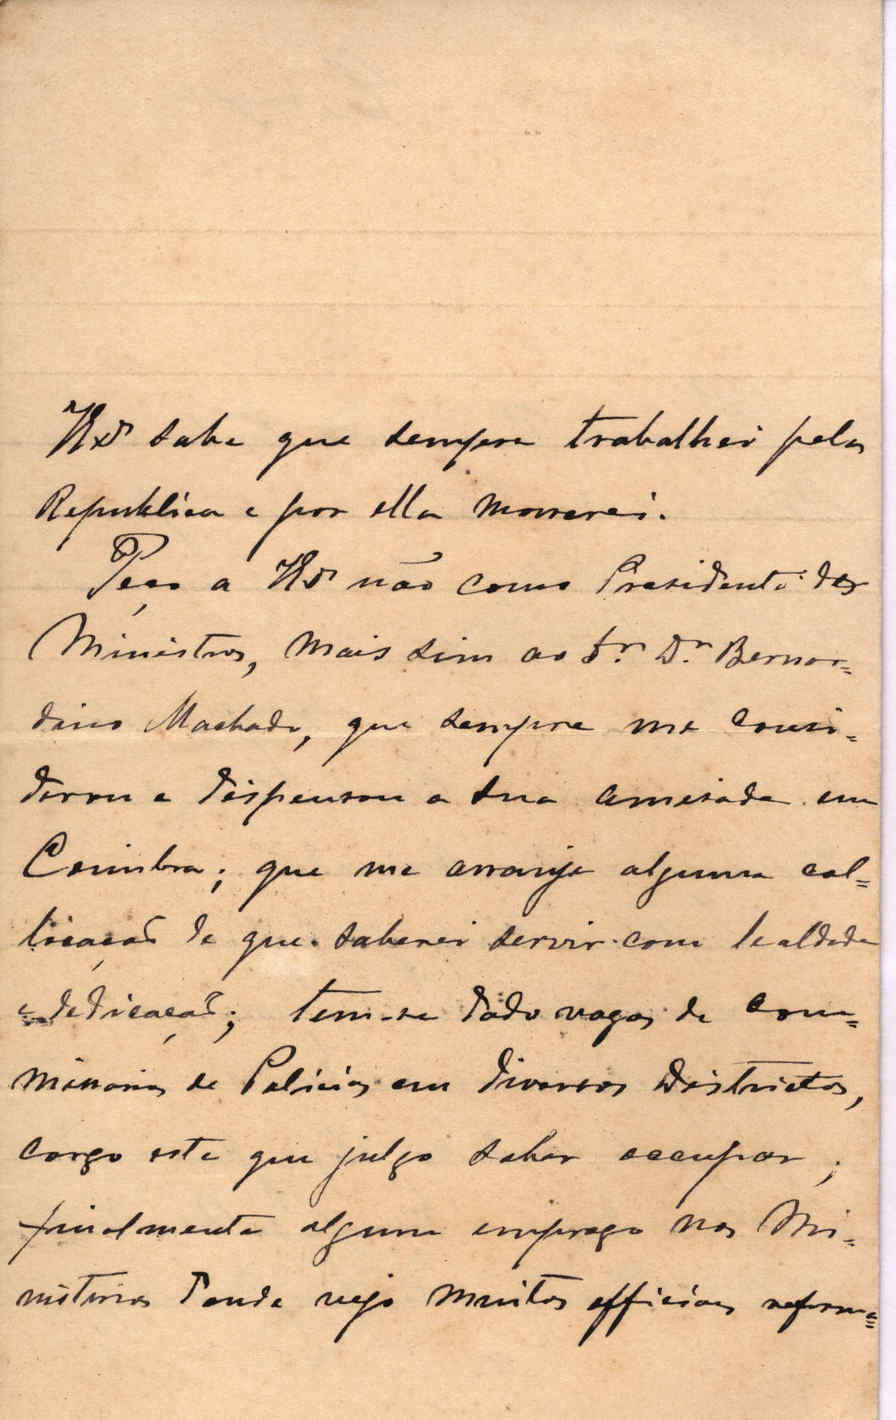 VExª sabe que sempre trabalhei pela
Republica e por ella morrerei.
Peço a VExª não como Presidente dos
Ministros, mais sim ao Sr. Dr. Bernar=
dino Machado, que sempre me consi=
derou e dispensou a sua amisade em
Coimbra; que me arranje alguma col=
locação de que saberei servir com lealdade
e dedicação; tem-se dado vagas de Com=
missarios de Policias em diversos Districtos,
cargo este que julgo saber occupar;
finalmente algum emprego nos Mi=
nisterios d'onde vejo muitos officiaes reform=